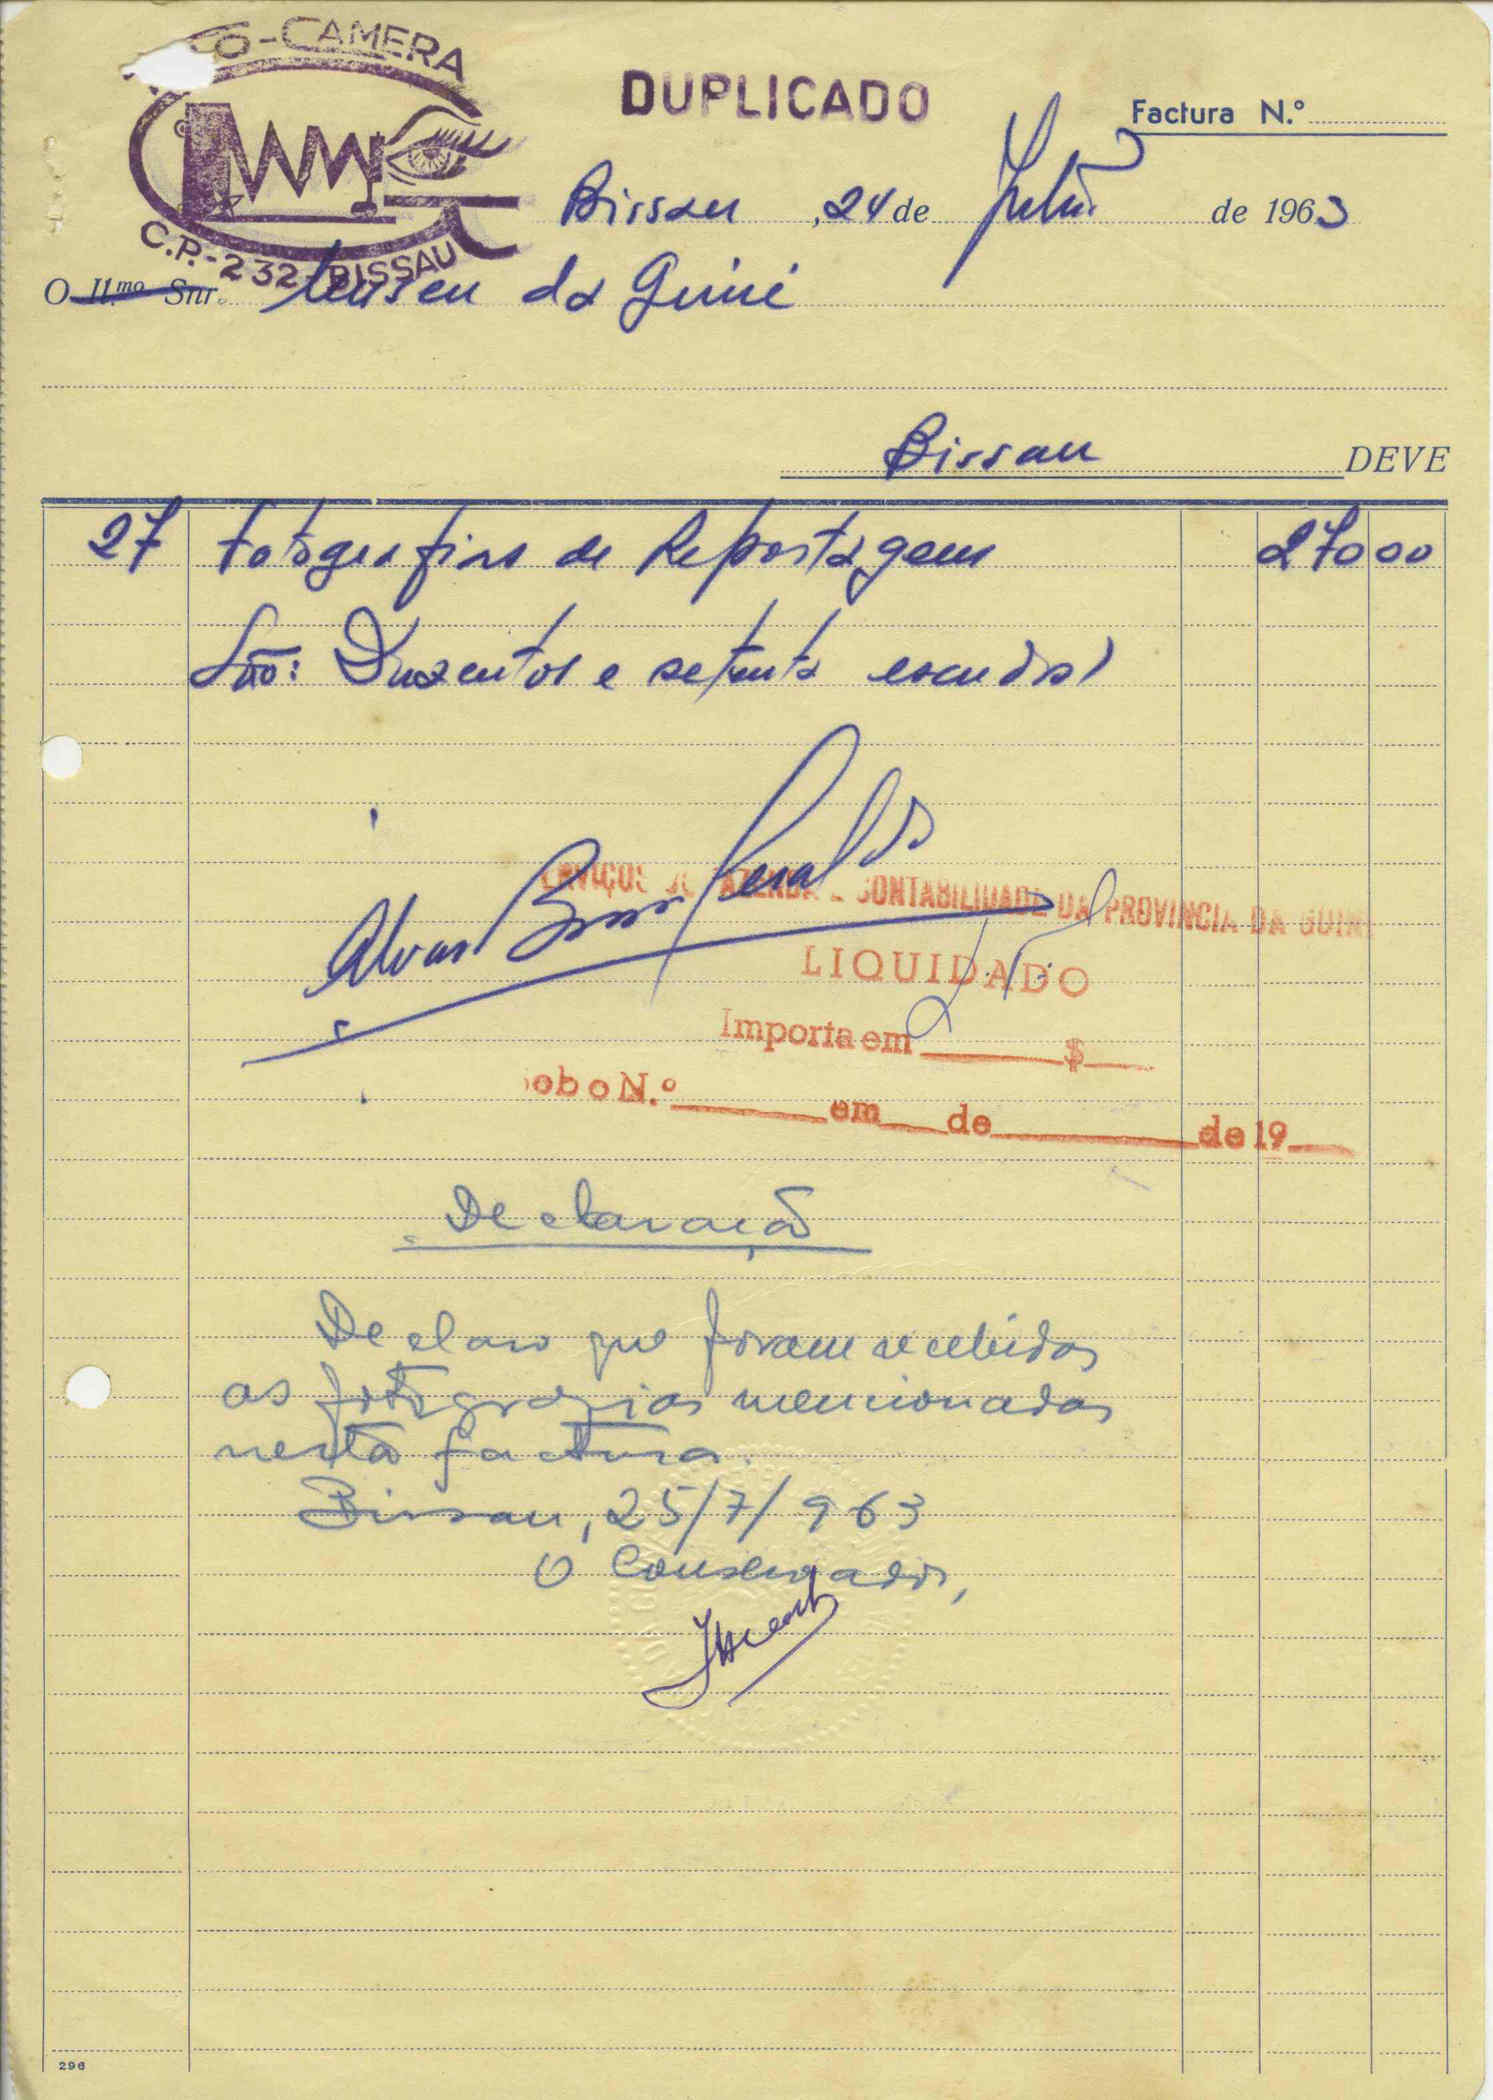 -CAMERA
C.P.-232-BISSAU
DUPLICADO
Factura N.º
Bissau, 24 de Julho de 1963
O Il.mo Snr. Museu da Guiné
Bissau DEVE
27 Fotografias de Reportagem 270 00
São: Duzentos e setenta escudos)
Alvaro Barros Geraldo
SERVIÇOS DE FAZENDA E CONTABILIDADE DA PROVINCIA DA GUIN
LIQUIDADO
Importa em $
obo N.º em de de 19
Declaração
Declaro que foram recebidas
as fotografias mencionadas
nesta factura.
Bissau, 25/7/963
O Conservador,
296